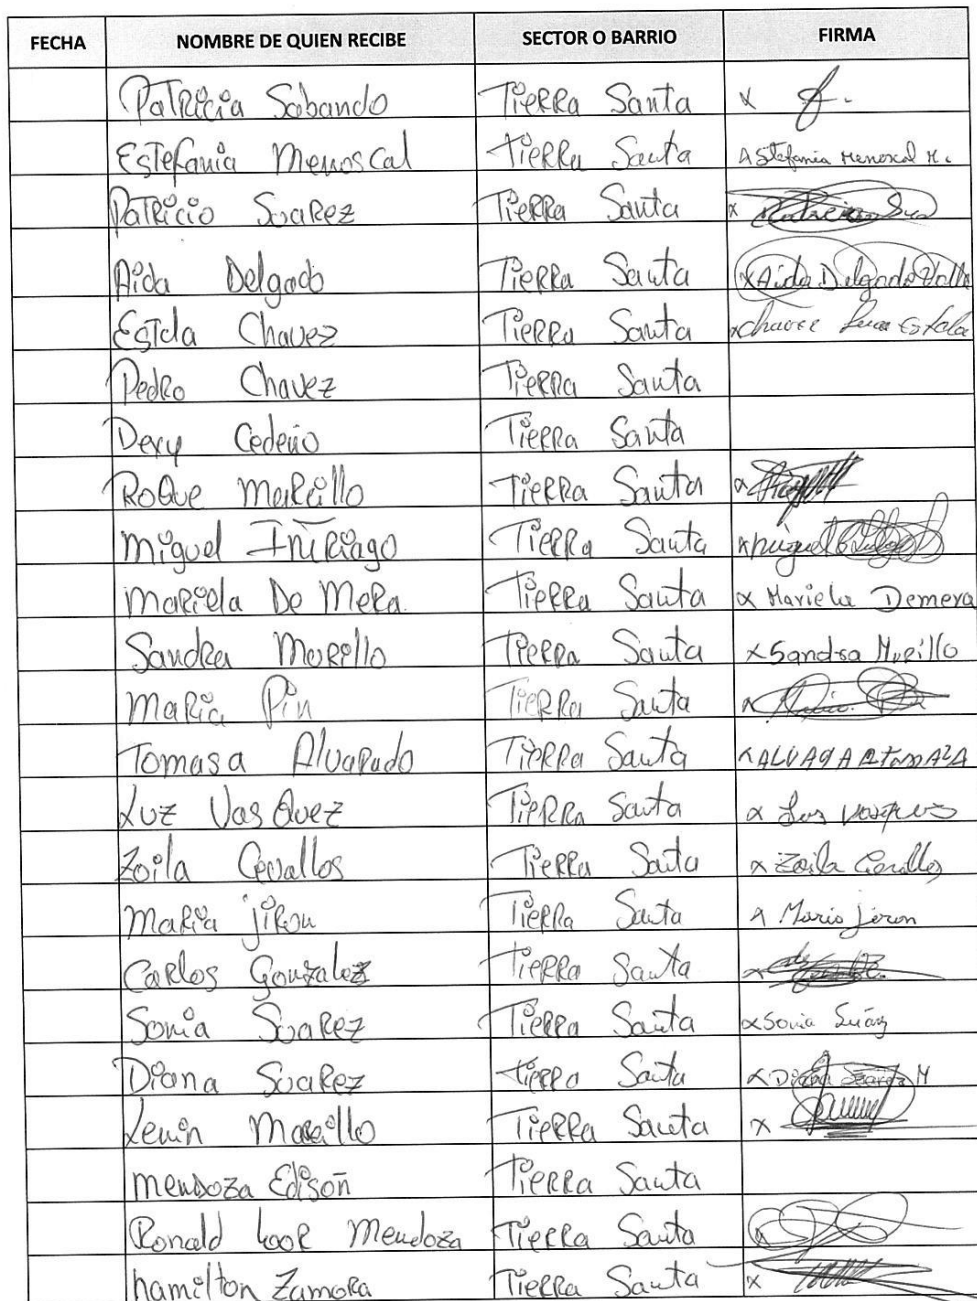 FECHA NOMBRE DE QUIEN RECIBE SECTOR O BARRIO FIRMA
Patricia Sabando Tierra Santa x
Estefania Menoscal tierra Santa x Stefania Menoscal M.
Patricio Suarez Tierra Santa x
Aida Delgado Tierra Santa x Aida Delgado Vallo
Estela Chavez Tierra Santa x Chavez Estela
Pedro Chavez Tierra Santa
Dexy Cedeño Tierra Santa
Roque Murillo Tierra Santa x
Miguel Iñiriago Tierra Santa x Miguel
Mariela De Mera Tierra Santa x Mariela Demera
Sandra Morillo Tierra Santa x Sandra Murillo
Maria Pin Tierra Santa x
Tomasa Alvarado Tierra Santa x
Luz Vasquez Tierra Santa x
Zoila Cevallos Tierra Santa x Zoila Cevallos
Maria jiron Tierra Santa x Maria jiron
Carlos Gonzalez Tierra Santa x
Sonia Suarez Tierra Santa x Sonia Suárez
Diana Suarez tierra Santa x Diana Suarez M
Kevin Murillo Tierra Santa x
Mendoza Edison Tierra Santa
Ronald Loor Mendoza Tierra Santa x
hamilton Zamora Tierra Santa x